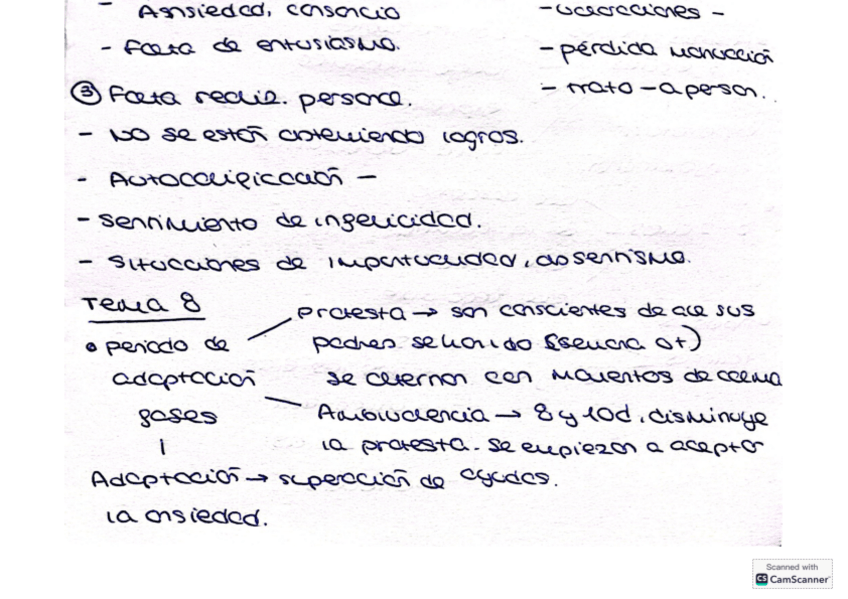 - Ansiedad, cansancio
- Falta de entusiasmo.
- vacaciones -
- pérdida motivación
- trato - a person.
③ Falta realiz. personal.
- No se están obteniendo logros.
- Autocalificación -
- Sentimiento de infelicidad.
- Situaciones de impuntualidad, absentismo.
Tema 8
• periodo de adaptación fases
protesta → son conscientes de que sus
padres se han ido (semana o +)
se alternan con momentos de calma
Ambivalencia → 8 y 10d, disminuye
la protesta. Se empiezan a aceptar
ayudas.
Adaptación → superación de
la ansiedad.
Scanned with
CS CamScanner